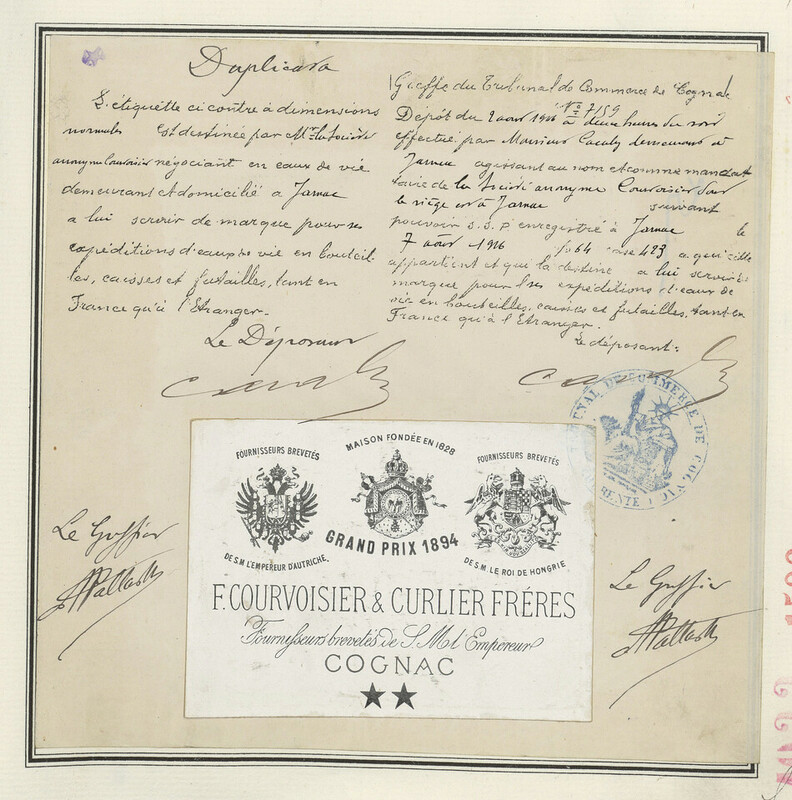 Duplicata
L'étiquette ci contre à dimensions
normales est destinée par Mr la Société
anonyme Courvoisier négociant en eaux de vie
demeurant et domicilié a Jarnac
a lui servir de marque pour ses
expéditions d'eaux de vie en bouteil-
les, caisses et futailles, tant en
France qu'à l'Etranger.
Le Déposant
Greffe du Tribunal de Commerce de Cognac
Dépôt du 2 août 1916 No 7159 à deux heures du soir
effectué par Monsieur demeurant à
Jarnac agissant au nom et comme mandat
taire de la Société anonyme Courvoisier dont
le siège est à Jarnac suivant
pouvoir S.S.P. enregistré à Jarnac le
7 août 1916 fo 64 case 423 a qui elle
appartient et qui la destine a lui servir de
marque pour ses expéditions d'eaux de
vie en bouteilles, caisses et futailles, tant en
France qu'à l'Etranger.
Le déposant:
TRIBUNAL DE COMMERCE DE COGNAC
Le Greffier
Le Greffier
FOURNISSEURS BREVETÉS
MAISON FONDÉE EN 1828
FOURNISSEURS BREVETÉS
DE S.M. L'EMPEREUR D'AUTRICHE,
GRAND PRIX 1894
DE S.M. LE ROI DE HONGRIE
F. COURVOISIER & CURLIER FRÉRES
Fournisseurs brevetés de S. M. l'Empereur
COGNAC